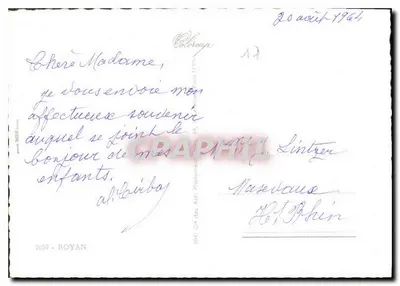 20 août 1964
Colorup
18
Chère Madame,
je vous envoie mon
affectueux souvenir
auquel se joint le
bonjour de mes
enfants.
CPAPHIL
Lintzer
Masevaux
Ht Rhin
- ROYAN